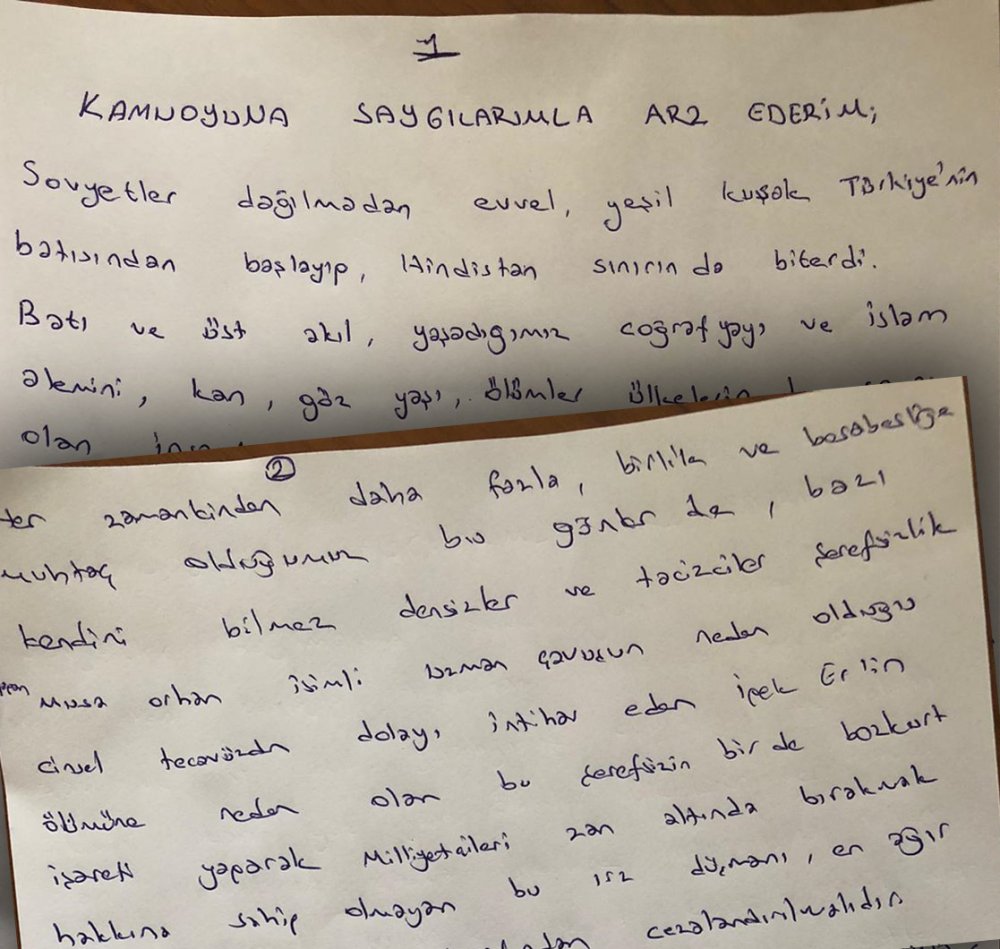 1
KAMUOYUNA SAYGILARIMLA ARZ EDERİM;
Sovyetler dağılmadan evvel, yeşil kuşak Türkiye'nin
batısından başlayıp, Hindistan sınırında biterdi.
Batı ve üst akıl, yaşadığımız coğrafyayı ve islam
alemini, kan, göz yaşı, ölümler ülkelerin
olan
2
her zamankinden daha fazla, birlik ve beraberliğe
muhtaç olduğumuz bu günler de, bazı
kendini bilmez densizler ve tacizciler şerefsizlik
Musa orhan isimli uzman çavuşun neden olduğu
cinsel tecavüzden dolayı, intihar eden ipek Er'in
ölümüne neden olan bu şerefsizin bir de bozkurt
işareti yaparak Milliyetcileri zan altında bırakmak
hakkına sahip olmayan bu ırz düşmanı, en ağır
cezalandırılmalıdır